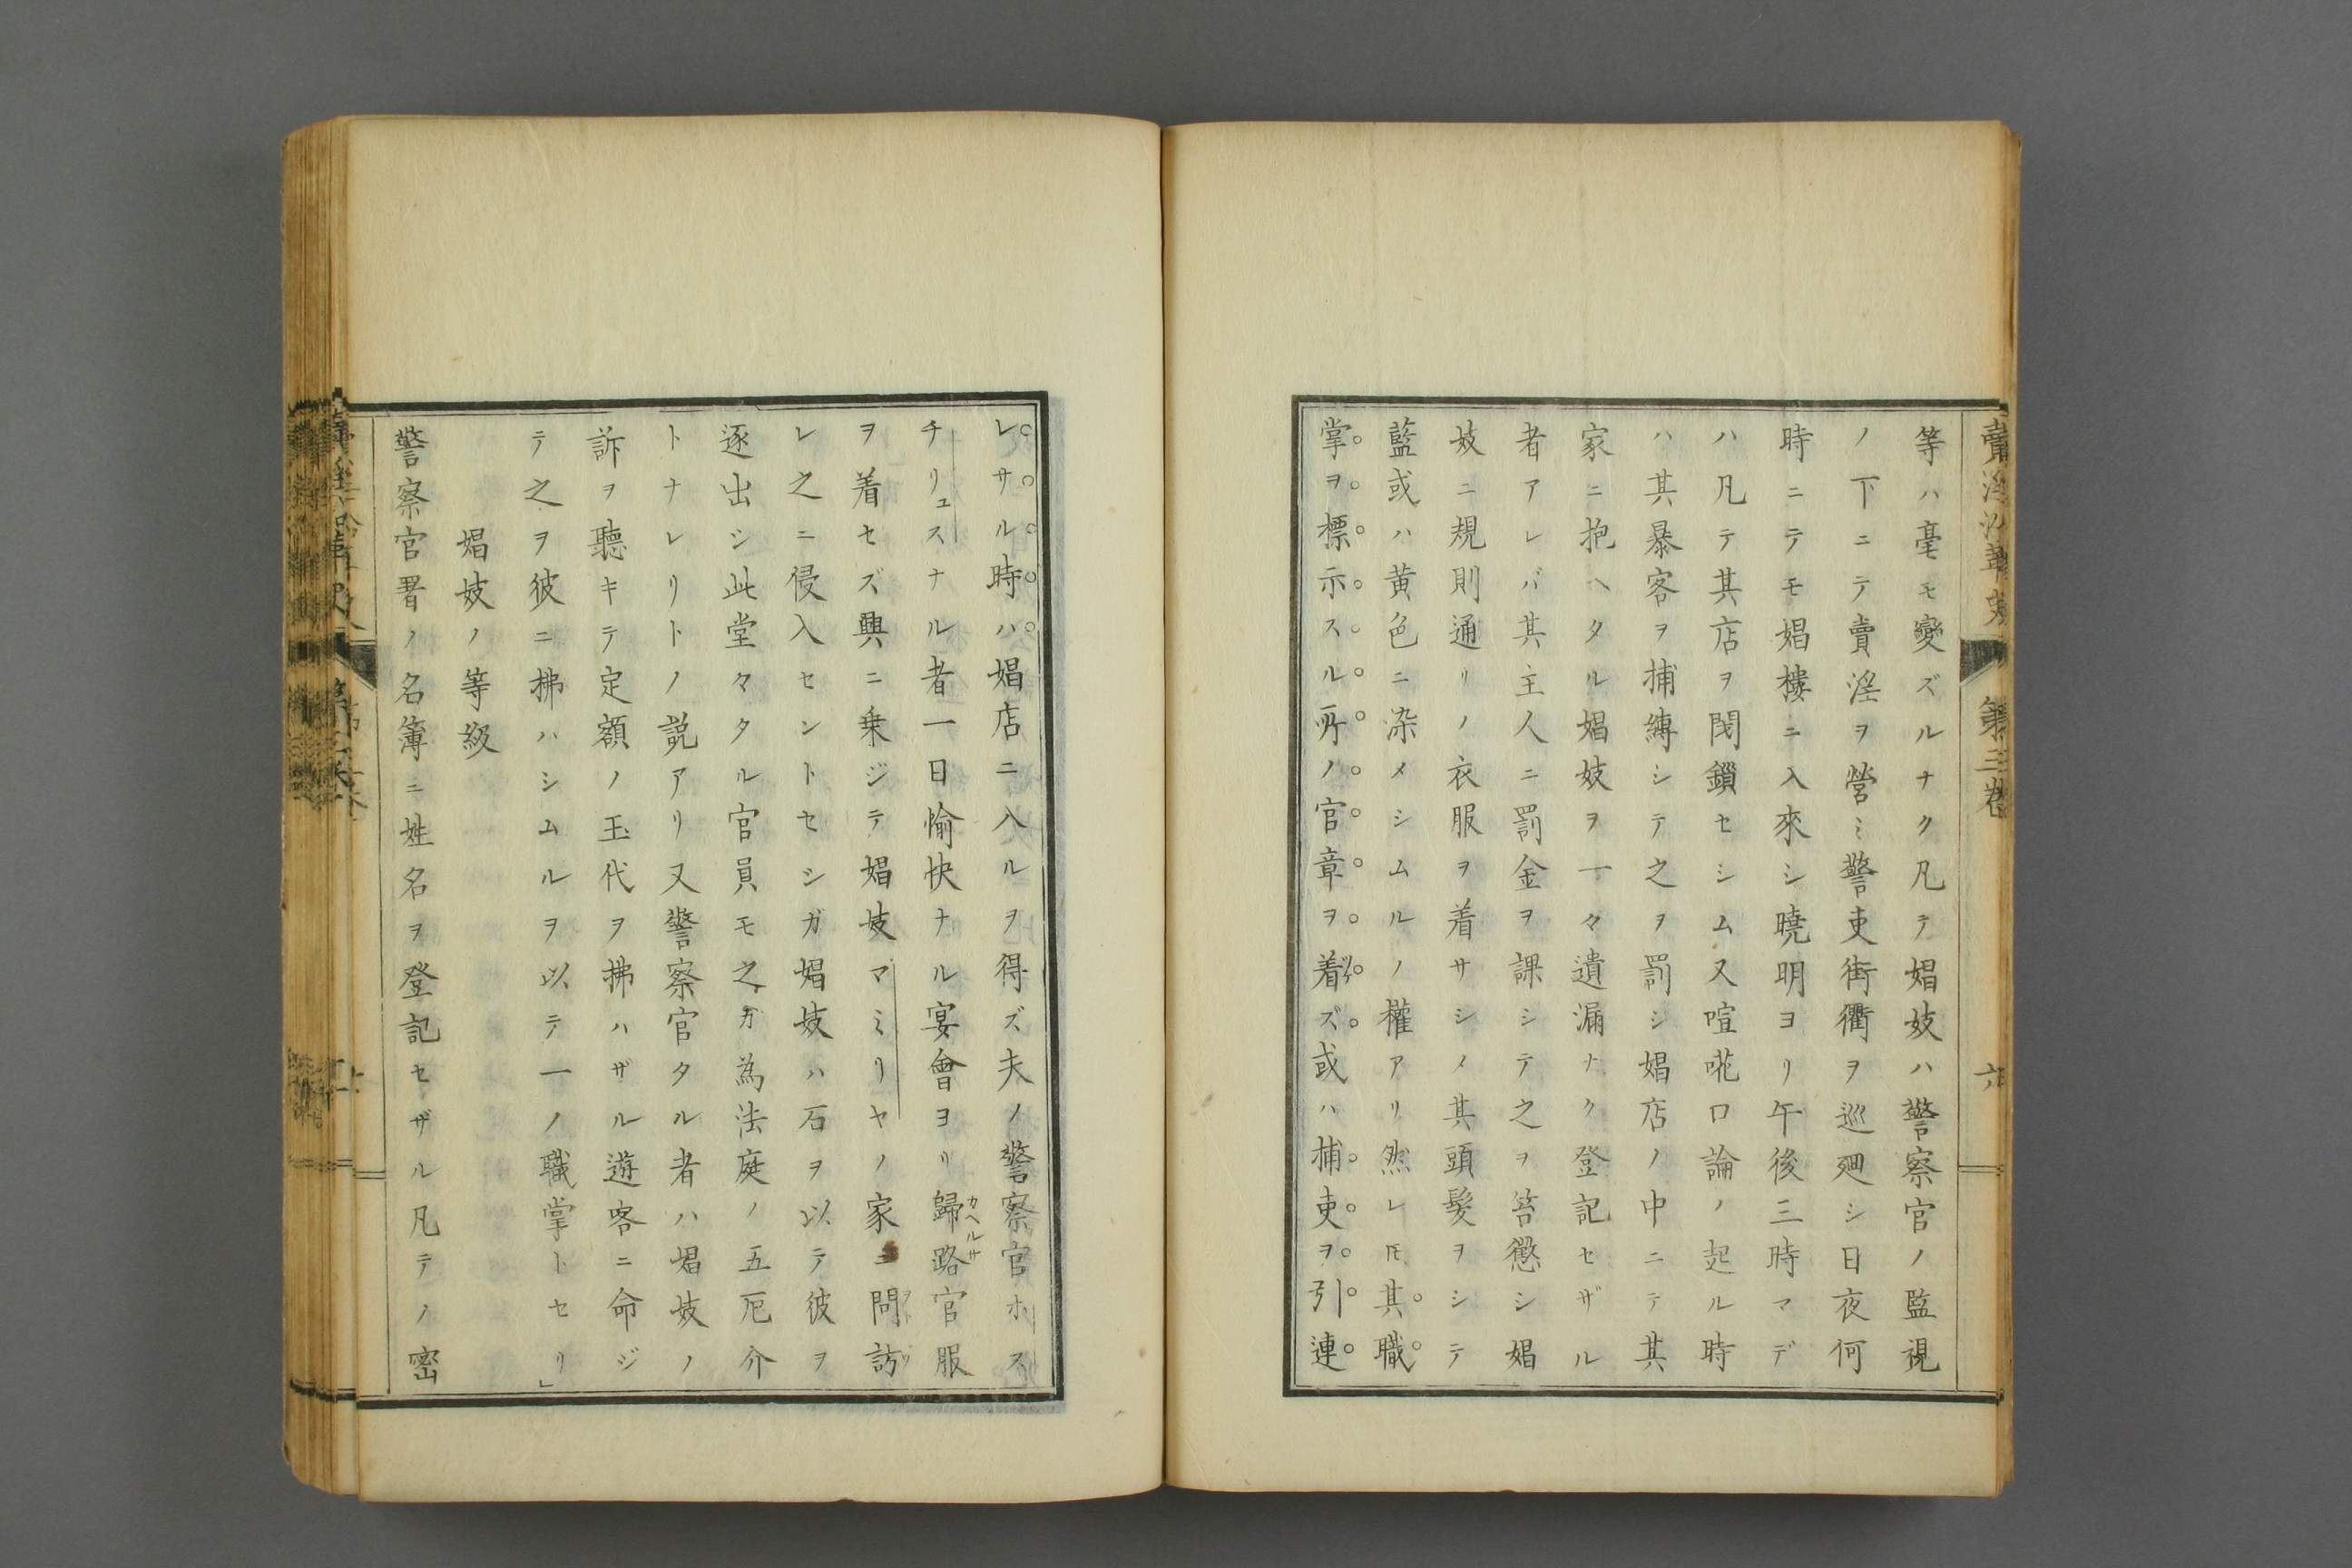 賣淫沿革史
第三卷
六
等ハ毫モ變ズルナク凡テ娼妓ハ警察官ノ監視
ノ下ニテ賣淫ヲ營ミ警吏街衢ヲ巡廻シ日夜何
時ニテモ娼樓ニ入來シ曉明ヨリ午後三時マデ
ハ凡テ其店ヲ閉鎖セシム又喧嘩口論ノ起ル時
ハ其暴客ヲ捕縛シテ之ヲ罰シ娼店ノ中ニテ其
家ニ抱ヘタル娼妓ヲ一々遺漏ナク登記セザル
者アレバ其主人ニ罰金ヲ課シテ之ヲ笞懲シ娼
妓ニ規則通リノ衣服ヲ着サシメ其頭髮ヲシテ
藍或ハ黄色ニ染メシムルノ權アリ然レ𪜈其職
掌ヲ標示スル所ノ官章ヲ着ズ或ハ捕吏ヲ引連
レサル時ハ娼店ニ入ルヲ得ズ夫ノ警察官ホス
チリュスナル者一日愉快ナル宴會ヨリ歸路官服
カヘルサ
ヲ着セズ興ニ乗ジテ娼妓マミリヤノ家ニ問訪
レ之ニ侵入セントセシガ娼妓ハ石ヲ以テ彼ヲ
逐出シ此堂々タル官員モ之ガ為法庭ノ五厄介
トナレリトノ説アリ又警察官タル者ハ娼妓ノ
訴ヲ聽キテ定額ノ玉代ヲ拂ハザル遊客ニ命ジ
テ之ヲ彼ニ拂ハシムルヲ以テ一ノ職掌トセリ」
娼妓ノ等級
警察官署ノ名簿ニ姓名ヲ登記セザル凡テノ密